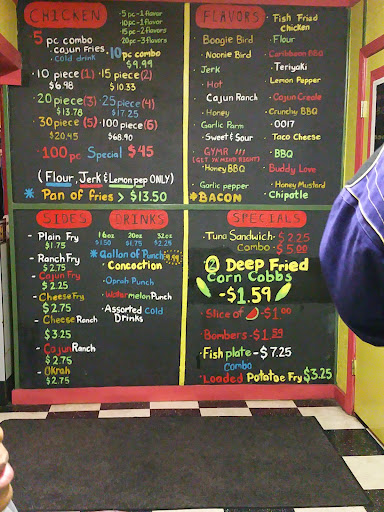 CHICKEN
5 pc - 1 flavor
10 pc - 1 flavor
15 pc - 2 flavor
20 pc - 3 flavors
5 pc combo
cajun fries
cold drink
10 pc combo
$9.99
10 piece (1)
$6.98
15 piece (2)
$10.33
20 piece (3)
$13.78
25 piece (4)
$17.25
30 piece (5)
$20.45
100 piece (6)
$68.90
100 pc Special $45
(Flour, Jerk & Lemon pep ONLY)
* Pan of fries > $13.50
FLAVORS
· Boogie Bird
· Noonie Bird
· Jerk
· Hot
· Cajun Ranch
· Honey
· Garlic Parm
· Sweet & Sour
· GYMR !!!
(GET YA MIND RIGHT)
· Honey BBQ
· Garlic pepper
* BACON
· Fish Fried
Chicken
· Flour
· Caribbean BBQ
· Teriyaki
· Lemon Pepper
· Cajun Creole
· Crunchy BBQ
· 0017
· Taco Cheese
· BBQ
· Buddy Love
· Honey Mustard
· Chipotle
SIDES
- Plain Fry
$1.75
- Ranch Fry
$2.75
- Cajun Fry
$2.75
- Cheese Fry
$2.75
- Cheese Ranch
$3.25
- Cajun Ranch
$2.75
- Okrah
$2.75
DRINKS
16oz 20oz 32oz
$1.50 $1.75 $2.25
* Gallon of Punch $9.99
· Concoction
· Oprah Punch
· Watermelon Punch
· Assorted Cold
Drinks
SPECIALS
· Tuna Sandwich - $2.25
Combo - $5.00
2 Deep Fried
Corn Cobbs
- $1.59
· Slice of - $1.00
· Bombers - $1.59
· Fish plate - $7.25
combo
· Loaded Potatoe Fry $3.25